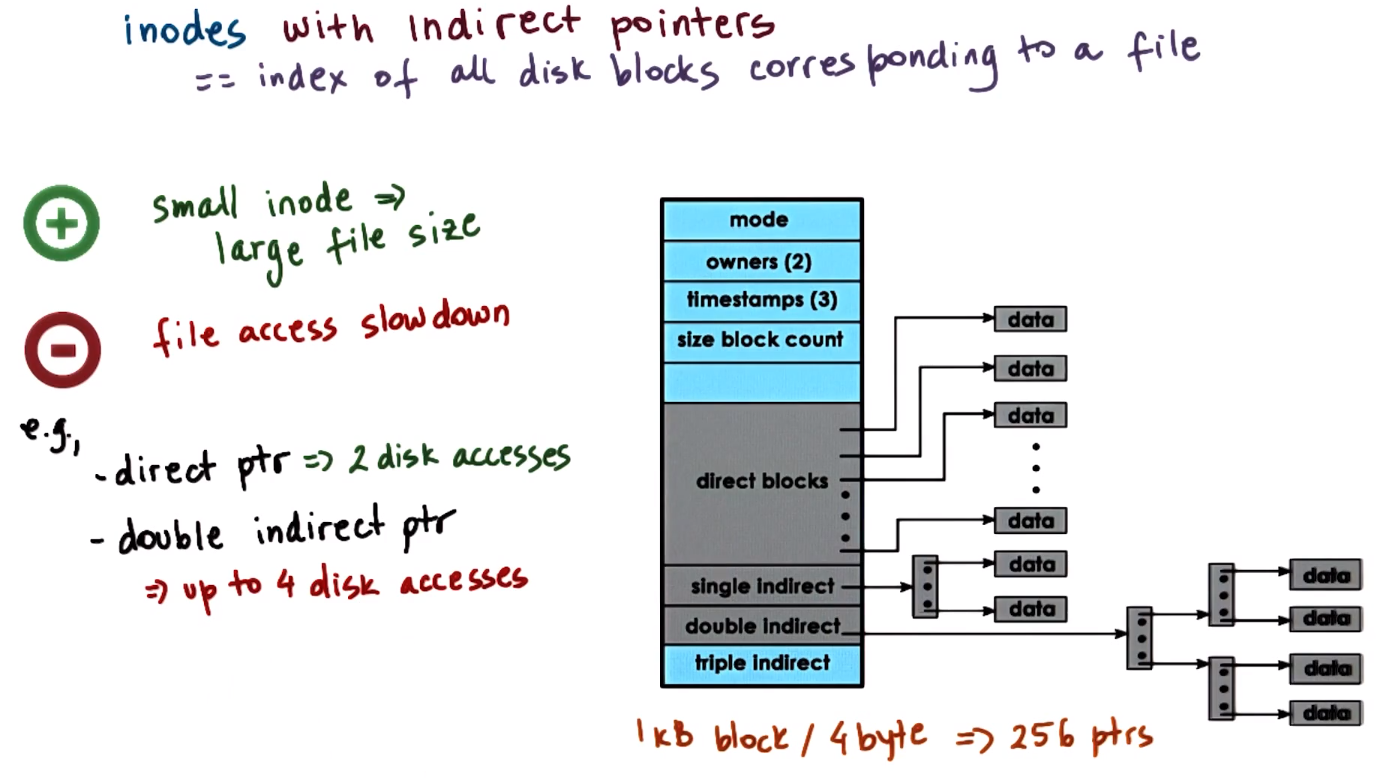 inodes with Indirect pointers
== index of all disk blocks corresponding to a file
small inode =>
large file size
file access slowdown
e.g.,
- direct ptr => 2 disk accesses
- double indirect ptr
=> up to 4 disk accesses
mode
owners (2)
timestamps (3)
size block count
direct blocks
single indirect
double indirect
triple indirect
data
data
data
data
data
data
data
data
data
data
1kB block / 4 byte => 256 ptrs